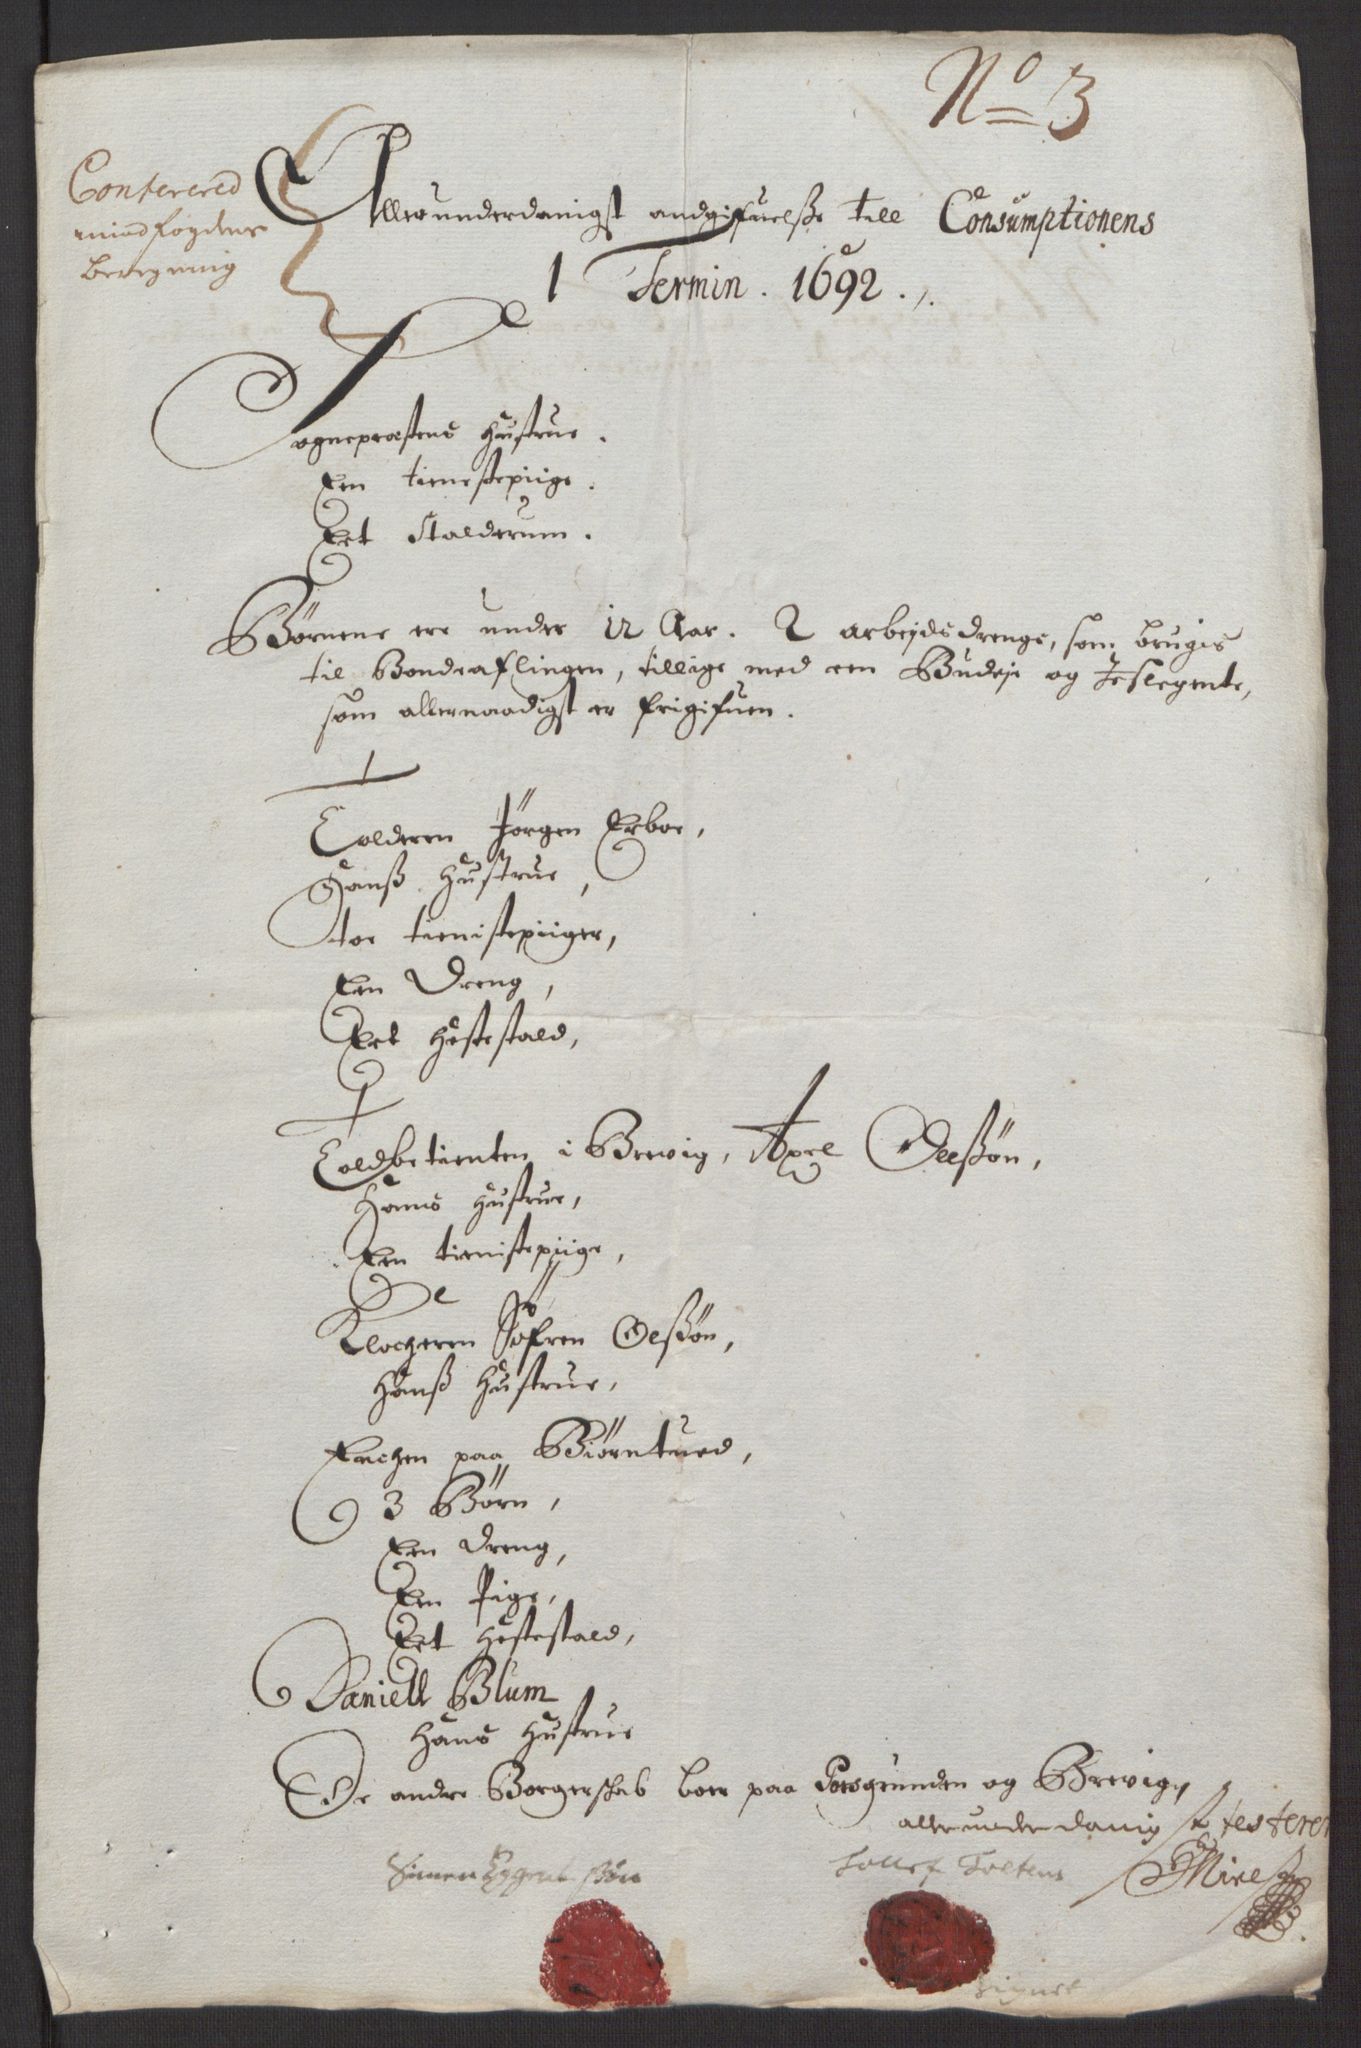 No 3
Conferered
med fogdens
beregning
Allerunderdanigst andgifuelsse till Consumptionens
1 Termin. 1692.
Sognepræstens Hustrue.
Een tienestepiige.
Eet Stalderum.
Børnene ere under 12 Aar. 2 arbejdsdrenge, som bruges
til Bondeaflingen, tillige med een Budeje og
som allernaadigst er frigifuen.
Tolderen Jørgen Erboe,
Hanss Hustrue,
Toe tienistepiiger,
Een Dreng,
Eet Hestestald,
Toldbetienten i Brevig, Axel Oelssøn,
Hans Hustrue,
Een tienistepiige,
Klocheren Søfren Oelssøn,
Hanss Hustrue,
Enchen paa Biørntued,
3 Børn,
Een Dreng,
Een Pige,
Eet Hestestald,
Daniell Blum
Hans Hustrue
De andre Borgerskab boer paa Porsgrunden og Brevig,
allerunderdanigst testerer
Simen
Tollef
Signet